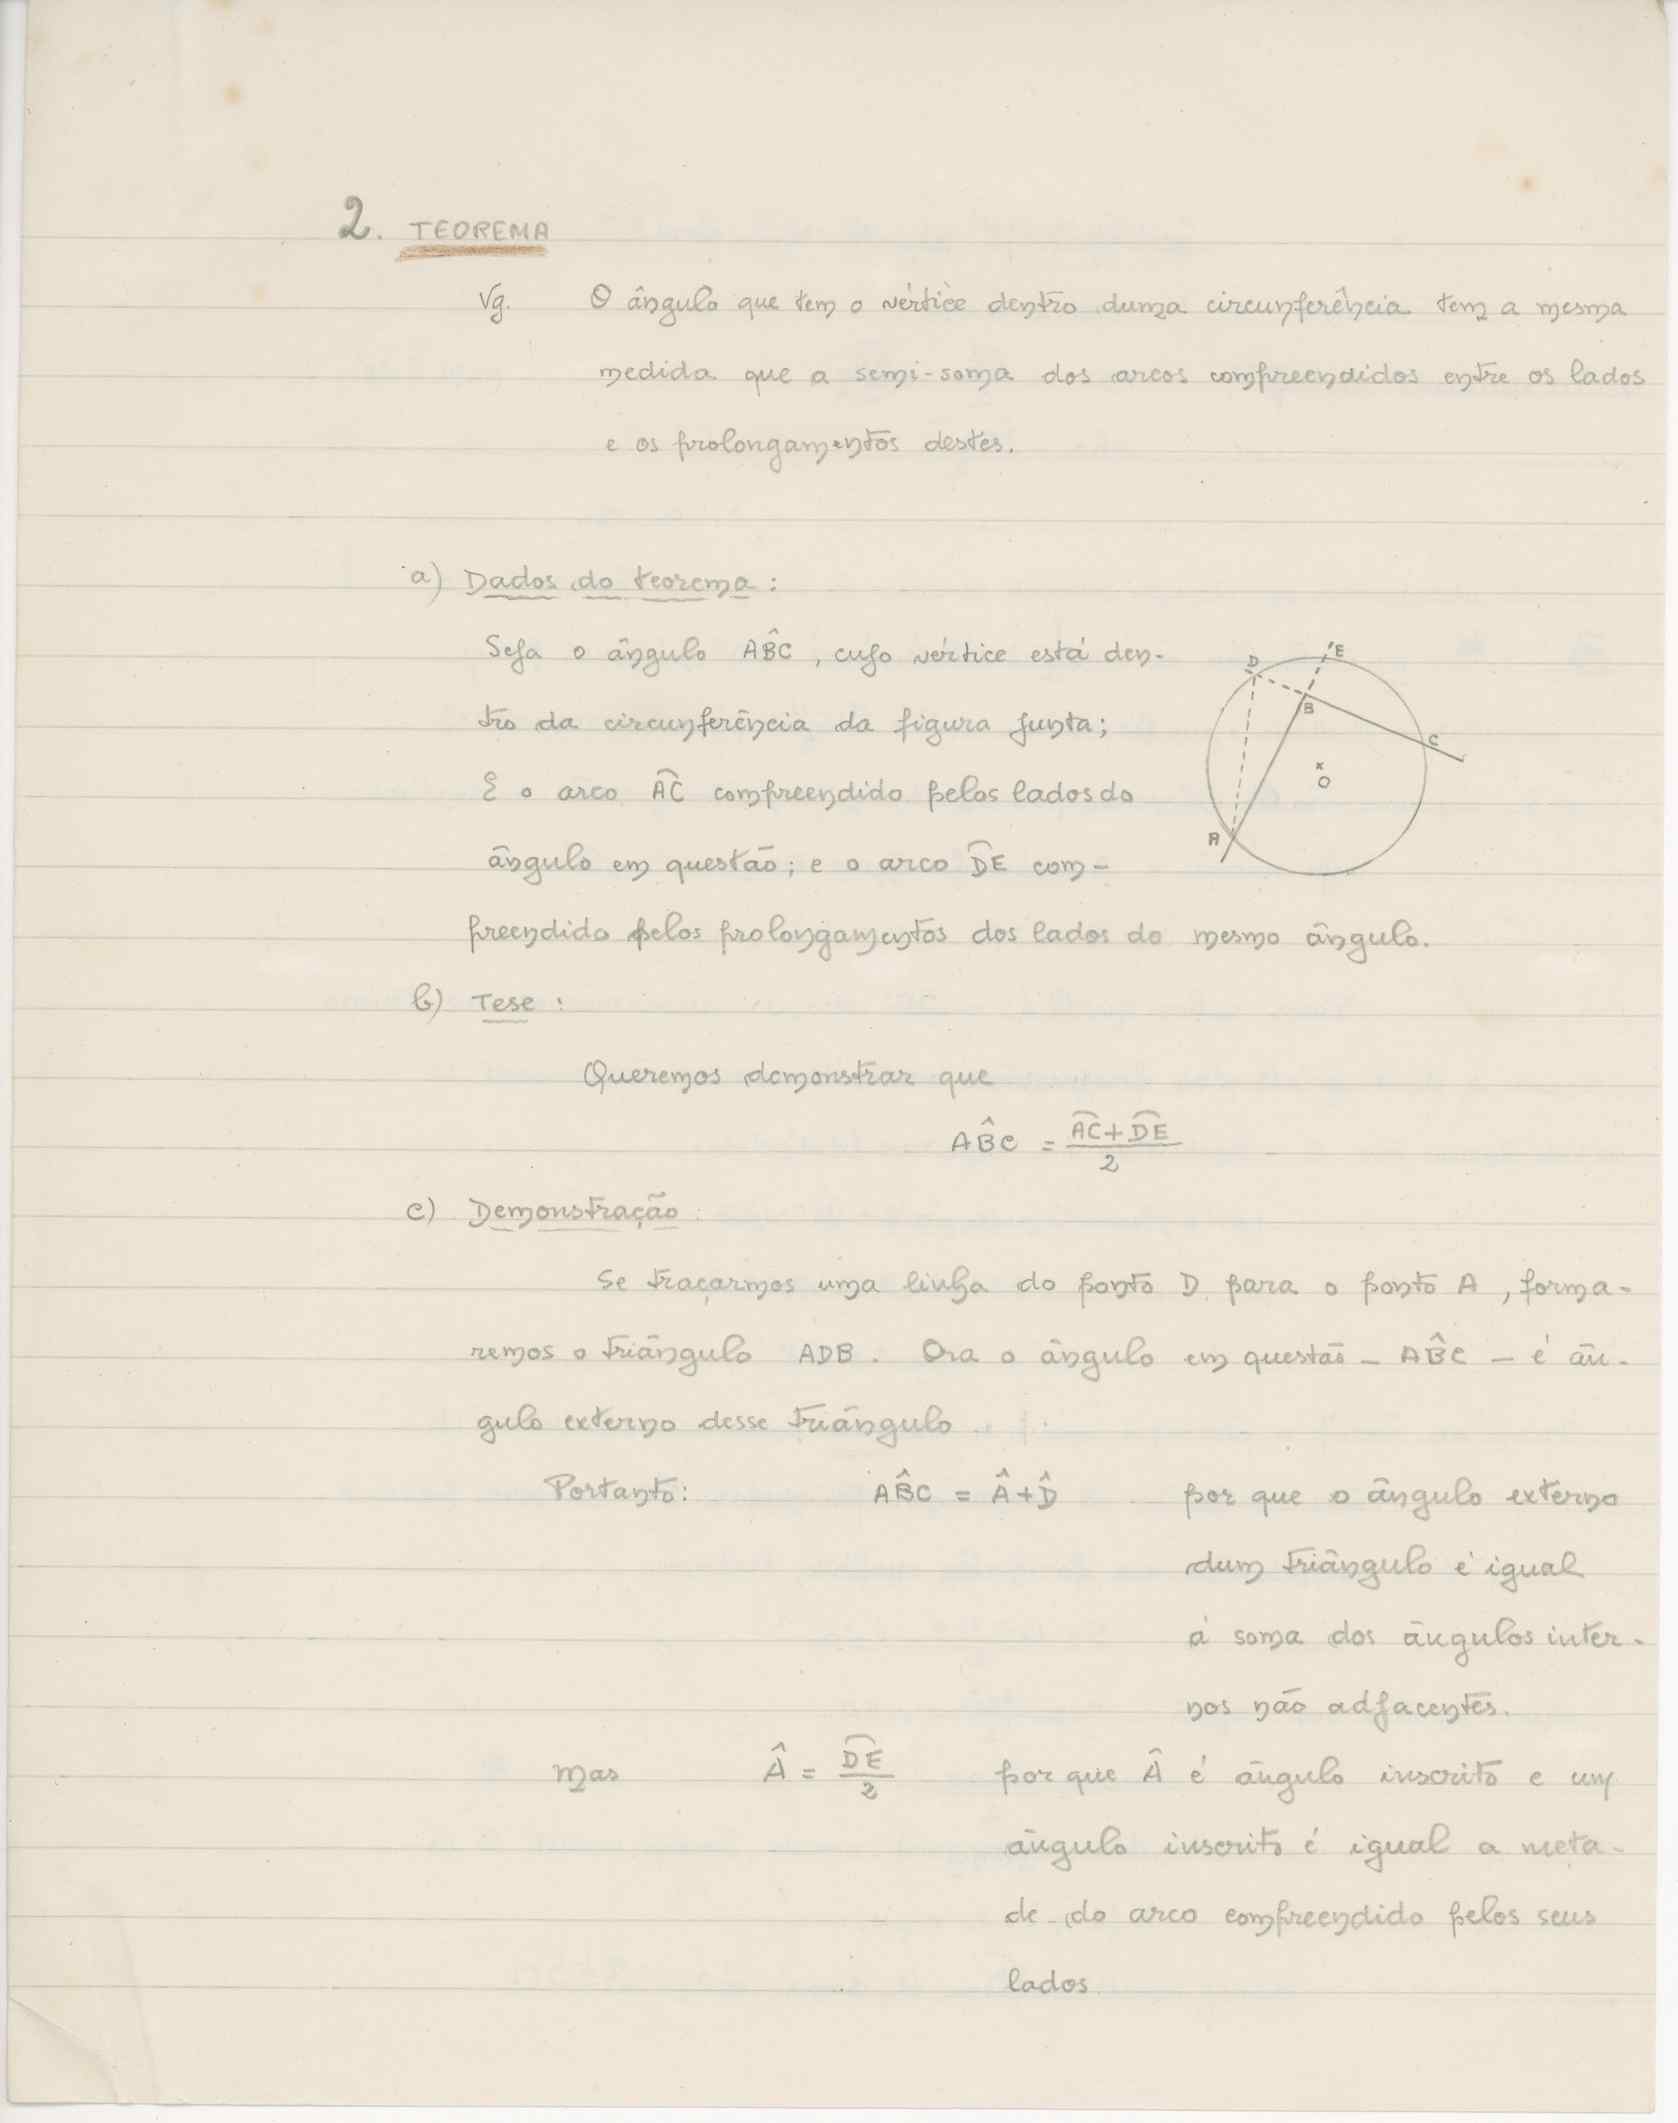 2. TEOREMA
Vg. O ângulo que tem o vértice dentro duma circunferência tem a mesma
medida que a semi-soma dos arcos compreendidos entre os lados
e os prolongamentos destes.
a) Dados do teorema:
Seja o ângulo AB̂C, cujo vértice está den-
tro da circunferência da figura junta;
E o arco A͡C compreendido pelos lados do
ângulo em questão; e o arco D͡E com-
preendido pelos prolongamentos dos lados do mesmo ângulo.
D E
B
C
x
O
A
b) Tese:
Queremos demonstrar que
AB̂C = (A͡C + D͡E)/2
c) Demonstração:
Se traçarmos uma linha do ponto D para o ponto A, forma-
remos o triângulo ADB. Ora o ângulo em questão - AB̂C - é ân-
gulo externo desse triângulo.
Portanto: AB̂C = Â + D̂ por que o ângulo externo
dum triângulo é igual
á soma dos ângulos inter-
nos não adjacentes.
Mas Â = D͡E/2 por que Â é ângulo inscrito e um
ângulo inscrito é igual a meta-
de do arco compreendido pelos seus
lados